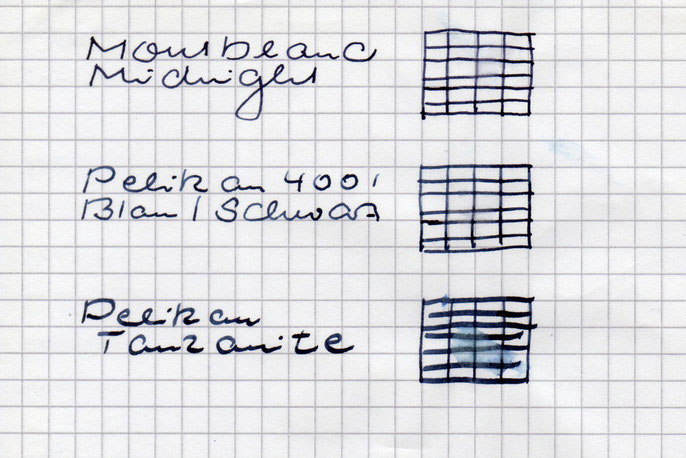 Montblanc
Midnight
Pelikan 4001
Blau/Schwarz
Pelikan
Tanzanite